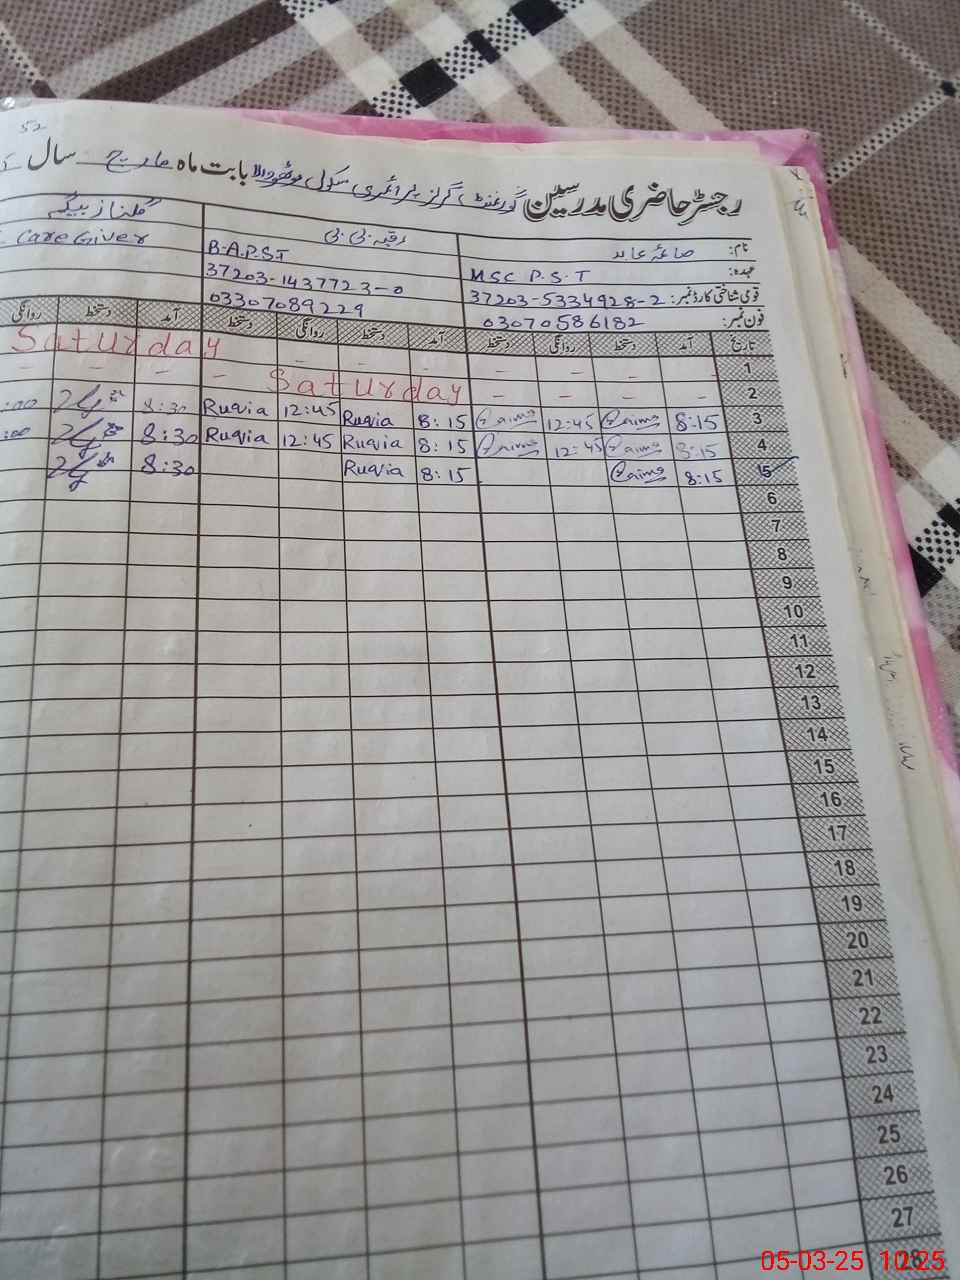 52
رجسٹر حاضری مدرسین گورنمنٹ گرلز پرائمری سکول بابت ماہ مارچ سال
نام: صائمہ عابد رقیہ بی بی گلناز بیگم
عہدہ: MSC P.S.T B.A.P.S.T Care Giver
قومی شناختی کارڈ نمبر: 37203-5334928-2 37203-1437723-0
فون نمبر: 03070586182 03307089229
تاریخ آمد دستخط روانگی دستخط آمد دستخط روانگی دستخط آمد دستخط روانگی
1 - - - - - - Saturday
2 - - - - Saturday - - - -
3 8:15 Saima 12:45 Saima 8:15 Ruqia 12:45 Ruqia 8:30 :00
4 8:15 Saima 12:45 Saima 8:15 Ruqia 12:45 Ruqia 8:30 :00
5 8:15 Saima 8:15 Ruqia 8:30
6
7
8
9
10
11
12
13
14
15
16
17
18
19
20
21
22
23
24
25
26
27
28
05-03-25 10:25